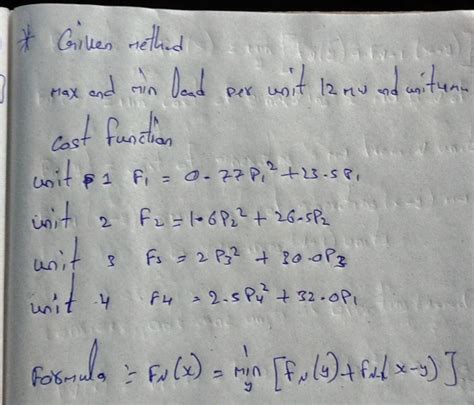 * Given method
Max and min load per unit 12 MW and unit 4MW
cost function
unit 1 F1 = 0.77P1² + 23.5P1
unit 2 F2 = 1.6P2² + 26.5P2
unit 3 F3 = 2P3² + 30.0P3
unit 4 F4 = 2.5P4² + 32.0P1
Formula :- FN(x) = min y [fN(y) + fN-1(x-y)]